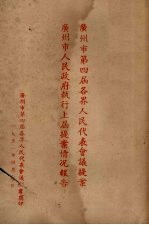 廣州市第四屆各界人民代表會議提案
廣州市人民政府執行上屆提案情況報告
廣州市第四屆各界人民代表會議